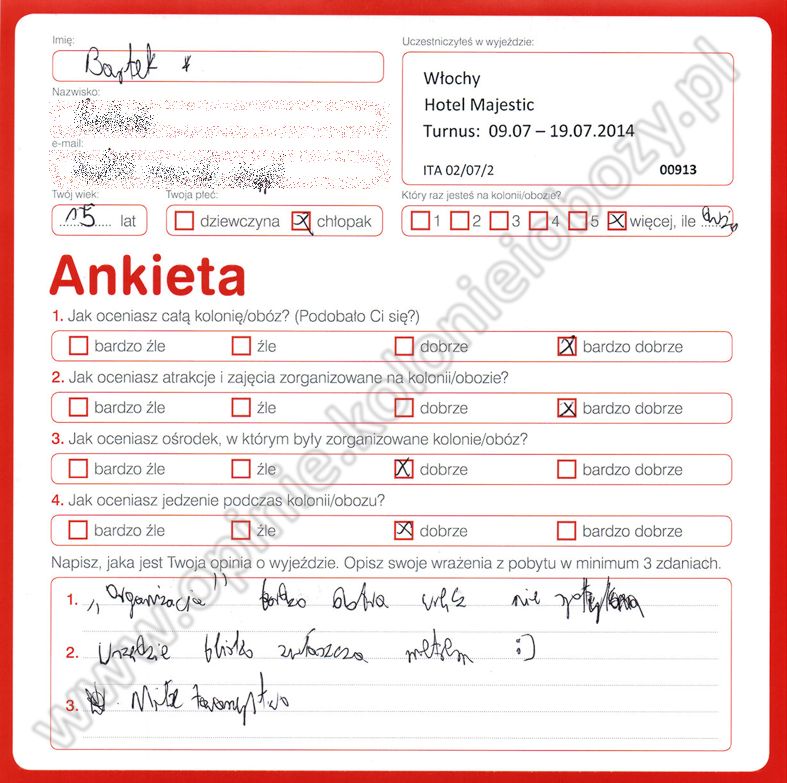 Imię:
Bartek
Nazwisko:
e-mail:
Twój wiek:
15 lat
Twoja płeć:
dziewczyna chłopak
Uczestniczyłeś w wyjeździe:
Włochy
Hotel Majestic
Turnus: 09.07 – 19.07.2014
ITA 02/07/2 00913
Który raz jesteś na kolonii/obozie?
1 2 3 4 5 więcej, ile
Ankieta
1. Jak oceniasz całą kolonię/obóz? (Podobało Ci się?)
bardzo źle źle dobrze bardzo dobrze
2. Jak oceniasz atrakcje i zajęcia zorganizowane na kolonii/obozie?
bardzo źle źle dobrze bardzo dobrze
3. Jak oceniasz ośrodek, w którym były zorganizowane kolonie/obóz?
bardzo źle źle dobrze bardzo dobrze
4. Jak oceniasz jedzenie podczas kolonii/obozu?
bardzo źle źle dobrze bardzo dobrze
Napisz, jaka jest Twoja opinia o wyjeździe. Opisz swoje wrażenia z pobytu w minimum 3 zdaniach.
1. „Organizacja" bardzo dobra wręcz nie
2. Wszędzie blisko zwłaszcza metrem :)
3. Miłe towarzystwo
www.opinie.kolonieiobozy.pl